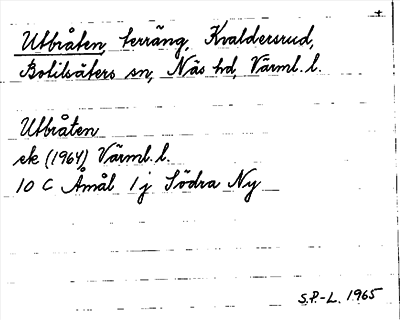 +
Utbråten, terräng, Kvaldersrud,
Botilsäters sn, Näs hd, Värml. l.
Utbråten
ek (1964) Värml. l.
10 C Åmål 1 j Södra Ny
S.P.-L. 1965